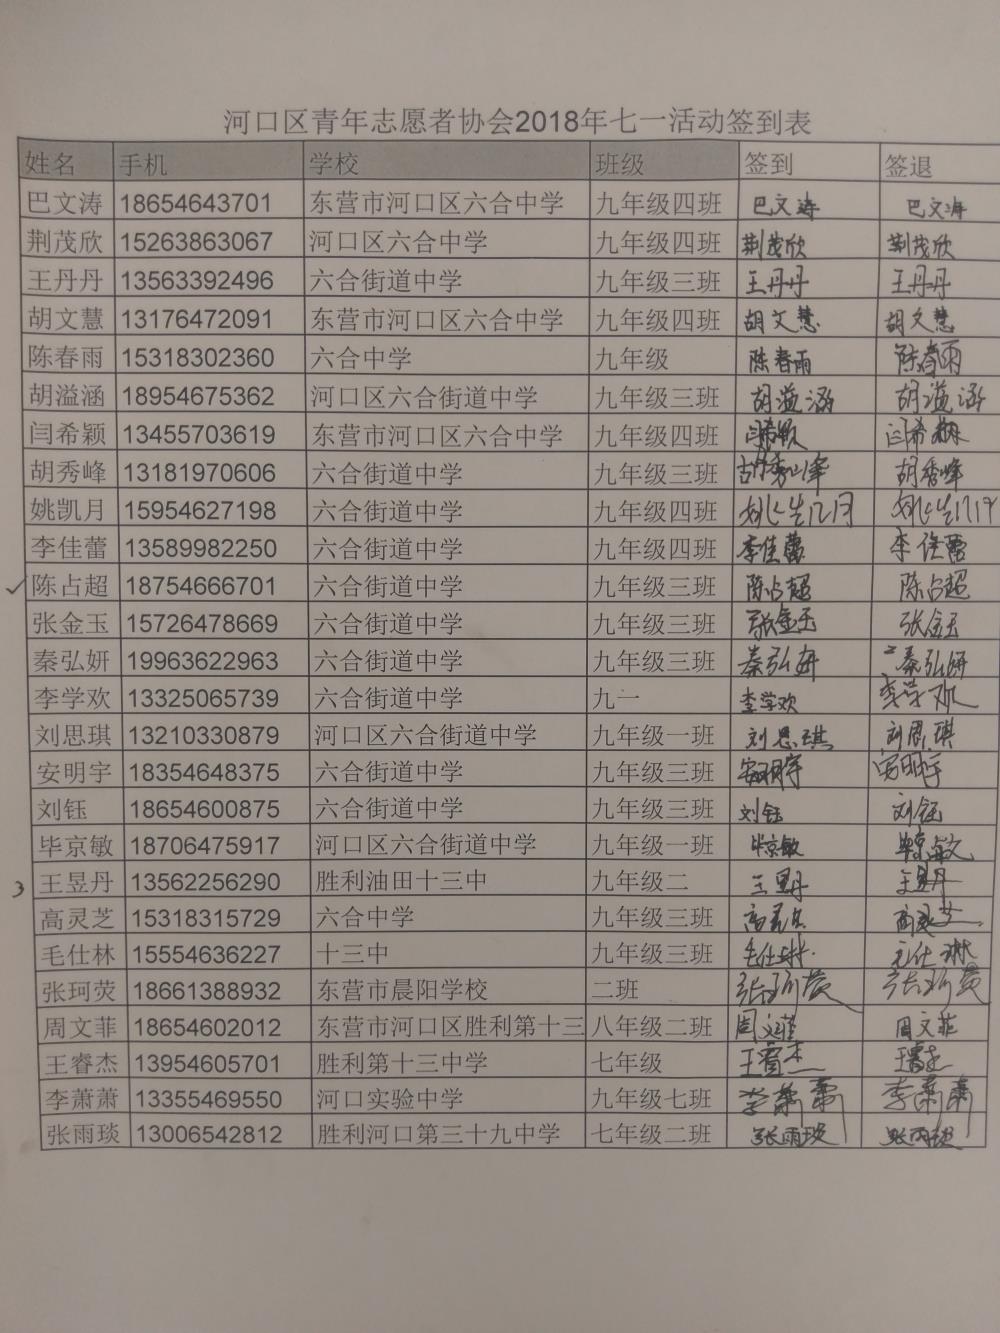 河口区青年志愿者协会2018年七一活动签到表
姓名 手机 学校 班级 签到 签退
巴文涛 18654643701 东营市河口区六合中学 九年级四班 巴文涛 巴文涛
荆茂欣 15263863067 河口区六合中学 九年级四班 荆茂欣 荆茂欣
王丹丹 13563392496 六合街道中学 九年级三班 王丹丹 王丹丹
胡文慧 13176472091 东营市河口区六合中学 九年级四班 胡文慧 胡文慧
陈春雨 15318302360 六合中学 九年级 陈春雨 陈春雨
胡溢涵 18954675362 河口区六合街道中学 九年级三班 胡溢涵 胡溢涵
闫希颖 13455703619 东营市河口区六合中学 九年级四班 闫希颖 闫希颖
胡秀峰 13181970606 六合街道中学 九年级三班 胡秀峰 胡秀峰
姚凯月 15954627198 六合街道中学 九年级四班 姚凯月 姚凯月
李佳蕾 13589982250 六合街道中学 九年级四班 李佳蕾 李佳蕾
✓ 陈占超 18754666701 六合街道中学 九年级三班 陈占超 陈占超
张金玉 15726478669 六合街道中学 九年级三班 张金玉 张金玉
秦弘妍 19963622963 六合街道中学 九年级三班 秦弘妍 秦弘妍
李学欢 13325065739 六合街道中学 九一 李学欢 李学欢
刘思琪 13210330879 河口区六合街道中学 九年级一班 刘思琪 刘思琪
安明宇 18354648375 六合街道中学 九年级三班 安明宇 安明宇
刘钰 18654600875 六合街道中学 九年级三班 刘钰 刘钰
毕京敏 18706475917 河口区六合街道中学 九年级一班 毕京敏 毕京敏
3 王昱丹 13562256290 胜利油田十三中 九年级二 王昱丹 王昱丹
高灵芝 15318315729 六合中学 九年级三班 高灵芝 高灵芝
毛仕林 15554636227 十三中 九年级三班 毛仕琳 毛仕琳
张珂荧 18661388932 东营市晨阳学校 二班 张珂荧 张珂荧
周文菲 18654602012 东营市河口区胜利第十三 八年级二班 周文菲 周文菲
王睿杰 13954605701 胜利第十三中学 七年级 王睿杰 王睿杰
李萧萧 13355469550 河口实验中学 九年级七班 李萧萧 李萧萧
张雨琰 13006542812 胜利河口第三十九中学 七年级二班 张雨琰 张雨琰